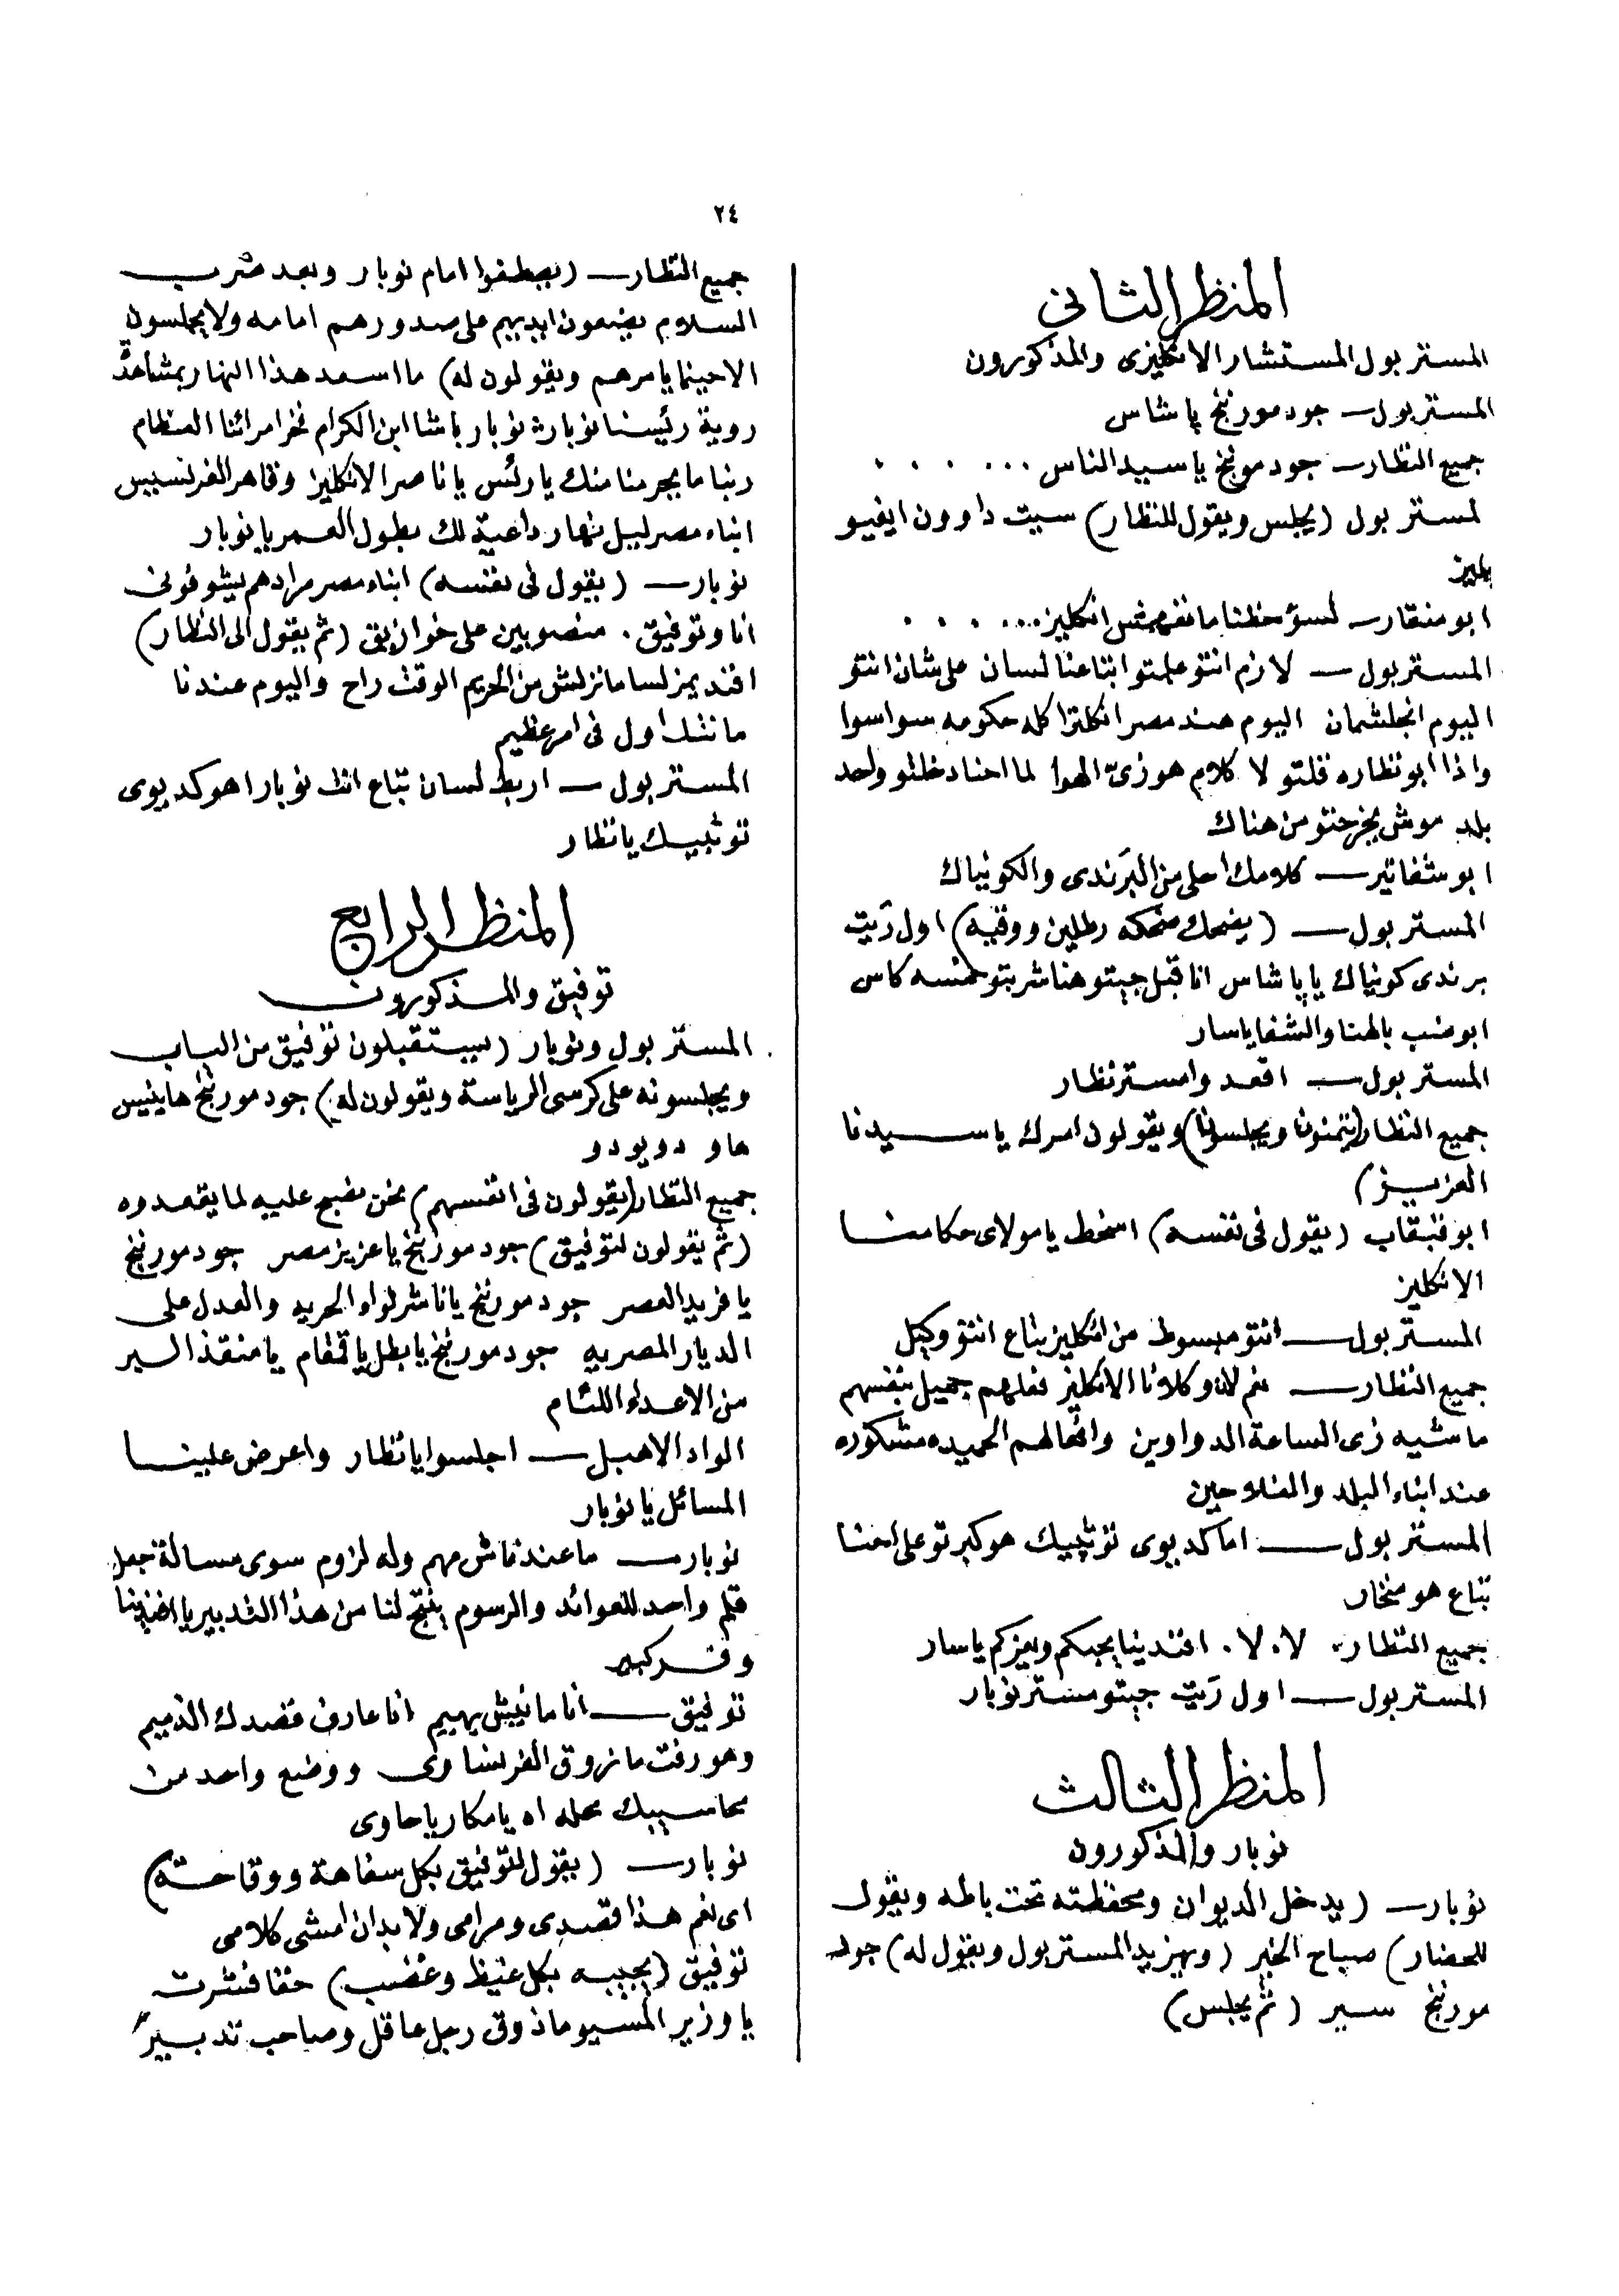 ٢٤
المنظر الثانى
المستر بول المستشار الانكليزى والمذكورون
المستر بول — جود مورننج پاشاس
جميع النظار — جود موننج ياسيد الناس . . . . . .
لمستر بول (يجلس ويقول للنظار) سيت داوون ايفيو
بليز
ابو منقار — لسؤ حظنا ما نفهمش انكليز . . . . . .
المستر بول — لازم انتو علمتو ابتاعنا لسان على شان انتو
اليوم انجلشمان اليوم هند مصر انكلترا كله حكومه سوا سوا
واذا ابو نظاره قلتو لا كلام هو زىّ الهوا لما احنا دخلتو واحد
بلد موش يخرجتو من هناك
ابو شفاتير — كلامك احلى من البَرندى والكونياك
المستر بول — (يضحك ضحكه رطلين ووقيه) اول رَيت
برندى كونياك يا پاشاس انا قبل جيتو هنا شربتو خمسه كاس
ابو ضب بالهنا والشفا ياسار
المستر بول — اقعد وامستر نظار
جميع النظار (يتمنون ويجلسون) ويقولون امرك ياسيدنا
العزيز)
ابو قبقاب (يقول فى نفسه) اسخط يا مولاى حكامنا
الانكليز
المستر بول — انتو مبسوط من انكليز بتاع انتو وكيل
جميع النظار — نعم لان وكلائنا الانكليز فعلهم جميل بنفسهم
ماشيه زى الساعة الدواوين وافعالهم الحميده مشكوره
عند ابناء البلد والفلاحين
المستر بول — اما كديوى توثپيك هو كبرتو على احنا
بتاع هو منخار
جميع النظار. لا. لا. افندينا يحبكم ويعزكم ياسار
المستر بول — اول رَيت جيتو مستر نوبار
المنظر الثالث
نوبار والمذكورون
نوبار — (يدخل الديوان ومحفظته تحت باطه ويقول
للحضار) صباح الخير (ويهز يد المستر بول ويقول له) جود
مورننج سير (ثم يجلس)
جميع النظار — (يصطفوا امام نوبار وبعد ضرب
السلام يضعون ايديهم على صدورهم امامه ولا يجلسون
الا حينما يامرهم ويقولون له) ما اسعد هذا النهار بمشاهدة
روية رئيسنا نوبار نوبار باشا ابن الكرام فخر امرائنا العظام
ربنا ما يحرمنا منك يا رئس يا ناصر الانكليز وقاهر الفرنسيس
ابناء مصر ليل نهار داعية لك بطول العمر يا نوبار
نوبار — (يقول فى نفسه) ابناء مصر مرادهم يشوفونى
انا وتوفيق. منصوبين على خوازيق (ثم يقول الى النظار)
افنديمز لسا ما نزلش من الحريم الوقت راح واليوم عندنا
ما نتداول فى امر عظيم
المستر بول — اربط لسان بتاع انت نوبار اهو كديوى
توثپيك يا نظار
المنظر الرابع
توفيق والمذكورون
المستر بول ونوبار (يستقبلون توفيق من الباب
ويجلسونه على كرسى الرياسة ويقولون له) جود مورننج هاينيس
هاو دو يو دو
جميع النظار (يقولون فى انفسهم) نحن نضج عليه لما يقعدوه
(ثم يقولون لتوفيق) جود مورننج يا عزيز مصر جود مورننج
يا فريد العصر جود مورننج يا ناشر لواء الحريه والعدل على
الديار المصريه جود مورننج يا بطل يا قمقام يا منقذ السير
من الاعداء اللئام
الواد الاهبل — اجلسوا يا نظار واعرض علينا
المسائل يا نوبار
نوبار — ما عندناش مهم وله لزوم سوى مسالة جعل
قلم واحد للعوائد والرسوم ينتج لنا من هذا التدبير يا افندينا
وفر كبير
توفيق — انا مانيش بهيم انا عارف قصدك الذميم
وهو رفت مازوق الفرنساوى ووضع واحد من
محاسيبك محله اه يا مكار يا حاوى
نوبار — (يقول لتوفيق بكل سفاهة ووقاحة)
اى نعم هذا قصدى ومرامى ولا بد ان امشى كلامى
توفيق (يجيبه بكل غيظ وغضب) حقا فشرت
يا وزير المسيو ماذوق رجل عاقل وصاحب تدبير